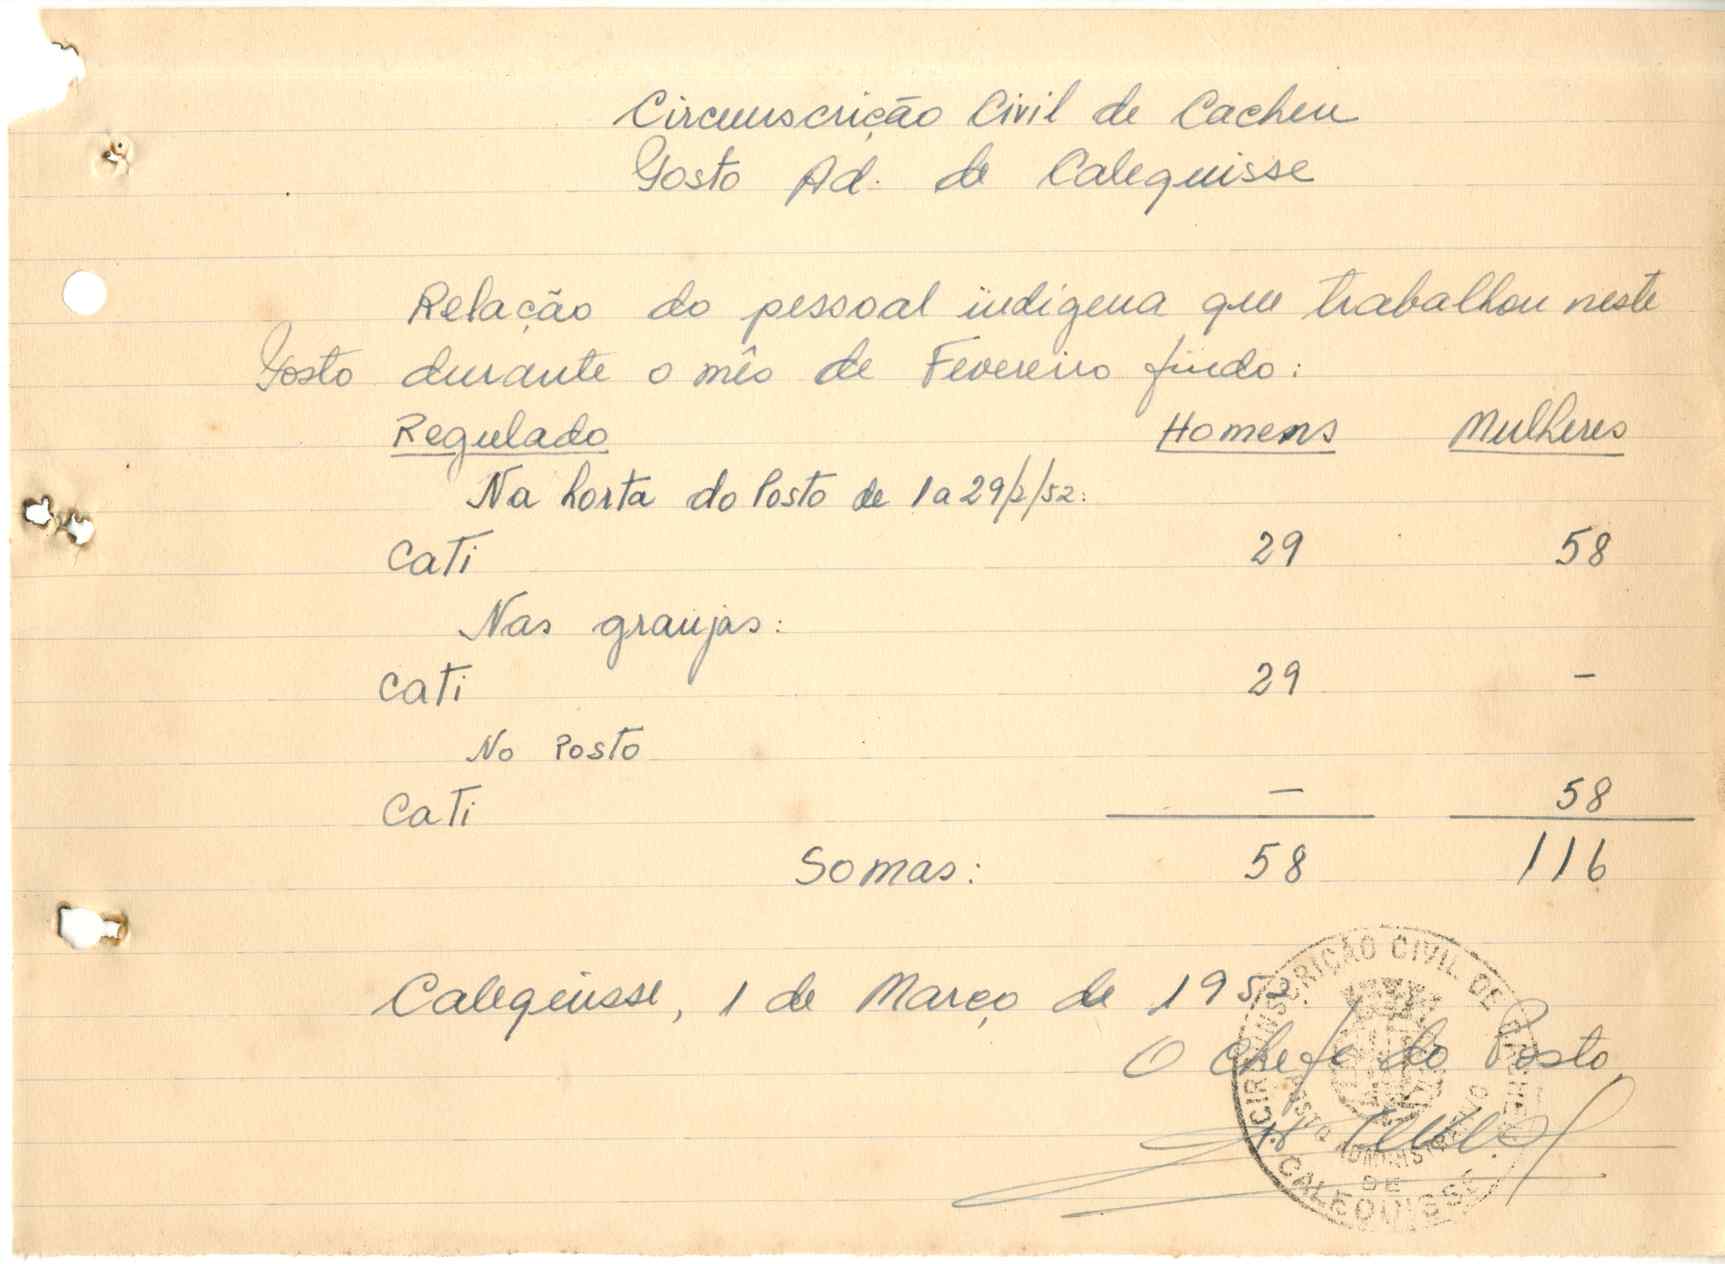 Circunscrição Civil de Cacheu
Posto Ad. de Calequisse
Relação do pessoal indígena que trabalhou neste
Posto durante o mês de Fevereiro findo:
Regulado Homens Mulheres
Na horta do Posto de 1 a 29/2/52:
Cati 29 58
Nas granjas:
Cati 29 -
No Posto
Cati - 58
Somas: 58 116
Calequisse, 1 de Março de 1952
O Chefe do Posto,
CIRCUNSCRIÇÃO CIVIL DE
POSTO ADMINISTRATIVO
DE
CALEQUISSE